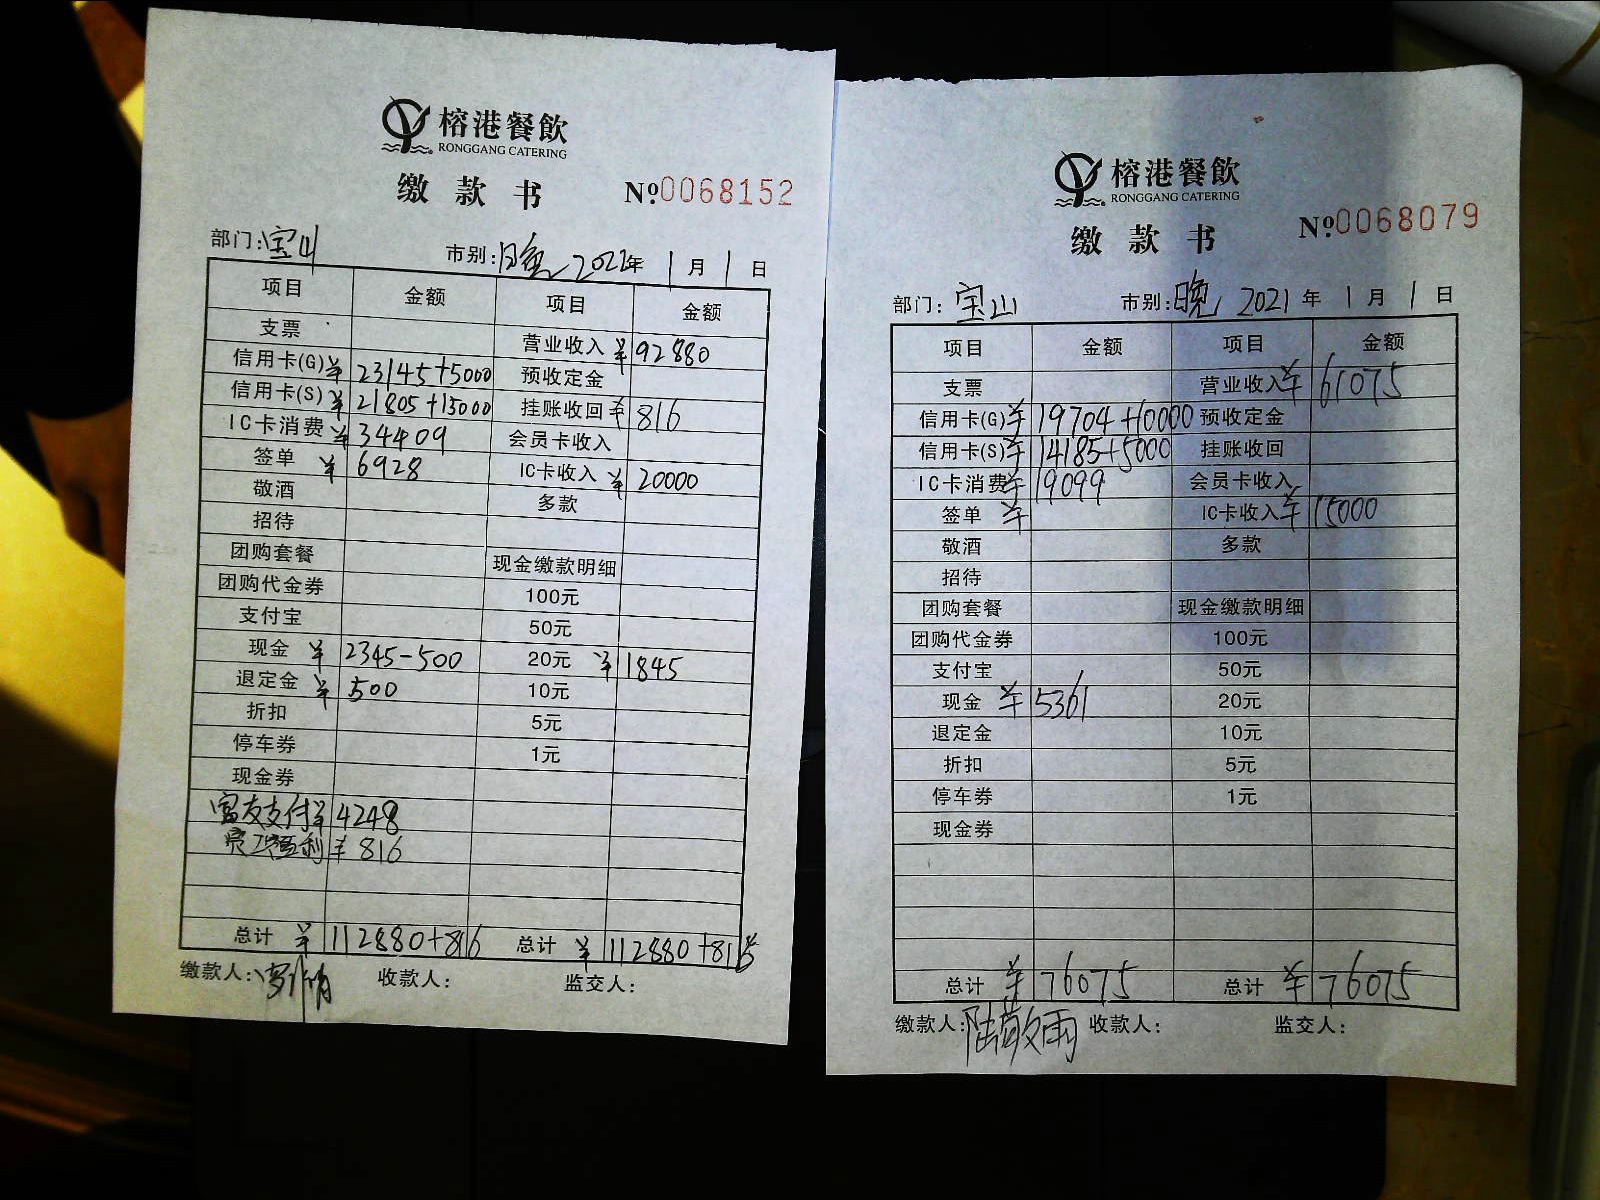 榕港餐飲
RONGGANG CATERING
缴款书 №0068152
部门:宝山 市别:日晚 2022年 1月 1日
项目 金额 项目 金额
支票 营业收入 ¥92880
信用卡(G) ¥23145+5000 预收定金
信用卡(S) ¥21805+15000 挂账收回 ¥816
IC卡消费 ¥34409 会员卡收入
签单 ¥6928 IC卡收入 ¥20000
敬酒 多款
招待
团购套餐 现金缴款明细
团购代金券 100元
支付宝 50元
现金 ¥2345-500 20元 ¥1845
退定金 ¥500 10元
折扣 5元
停车券 1元
现金券
富友支付 ¥4248
福利 ¥816
总计 ¥112880+816 总计 ¥112880+816
缴款人: 收款人: 监交人:
榕港餐飲
RONGGANG CATERING
缴款书 №0068079
部门:宝山 市别:晚 2021年 1月 1日
项目 金额 项目 金额
支票 营业收入 ¥61075
信用卡(G) ¥19704+10000 预收定金
信用卡(S) ¥14185+5000 挂账收回
IC卡消费 ¥19099 会员卡收入
签单 ¥ IC卡收入 ¥15000
敬酒 多款
招待
团购套餐 现金缴款明细
团购代金券 100元
支付宝 50元
现金 ¥5361 20元
退定金 10元
折扣 5元
停车券 1元
现金券
总计 ¥76075 总计 ¥76075
缴款人:陆敬雨 收款人: 监交人: